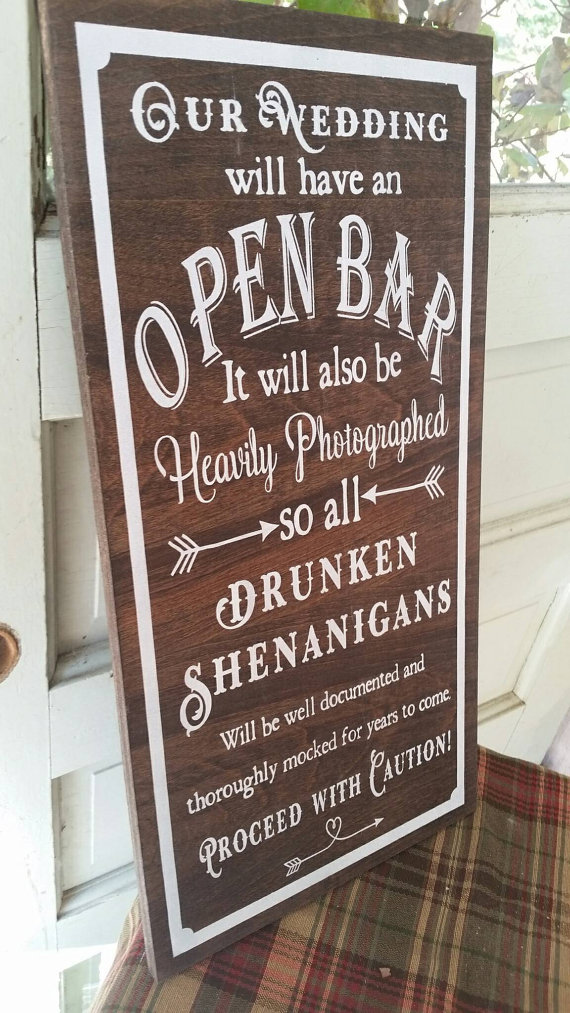 Our Wedding
will have an
OPEN BAR
It will also be
Heavily Photographed
so all
DRUNKEN
SHENANIGANS
Will be well documented and
thoroughly mocked for years to come.
Proceed with Caution!